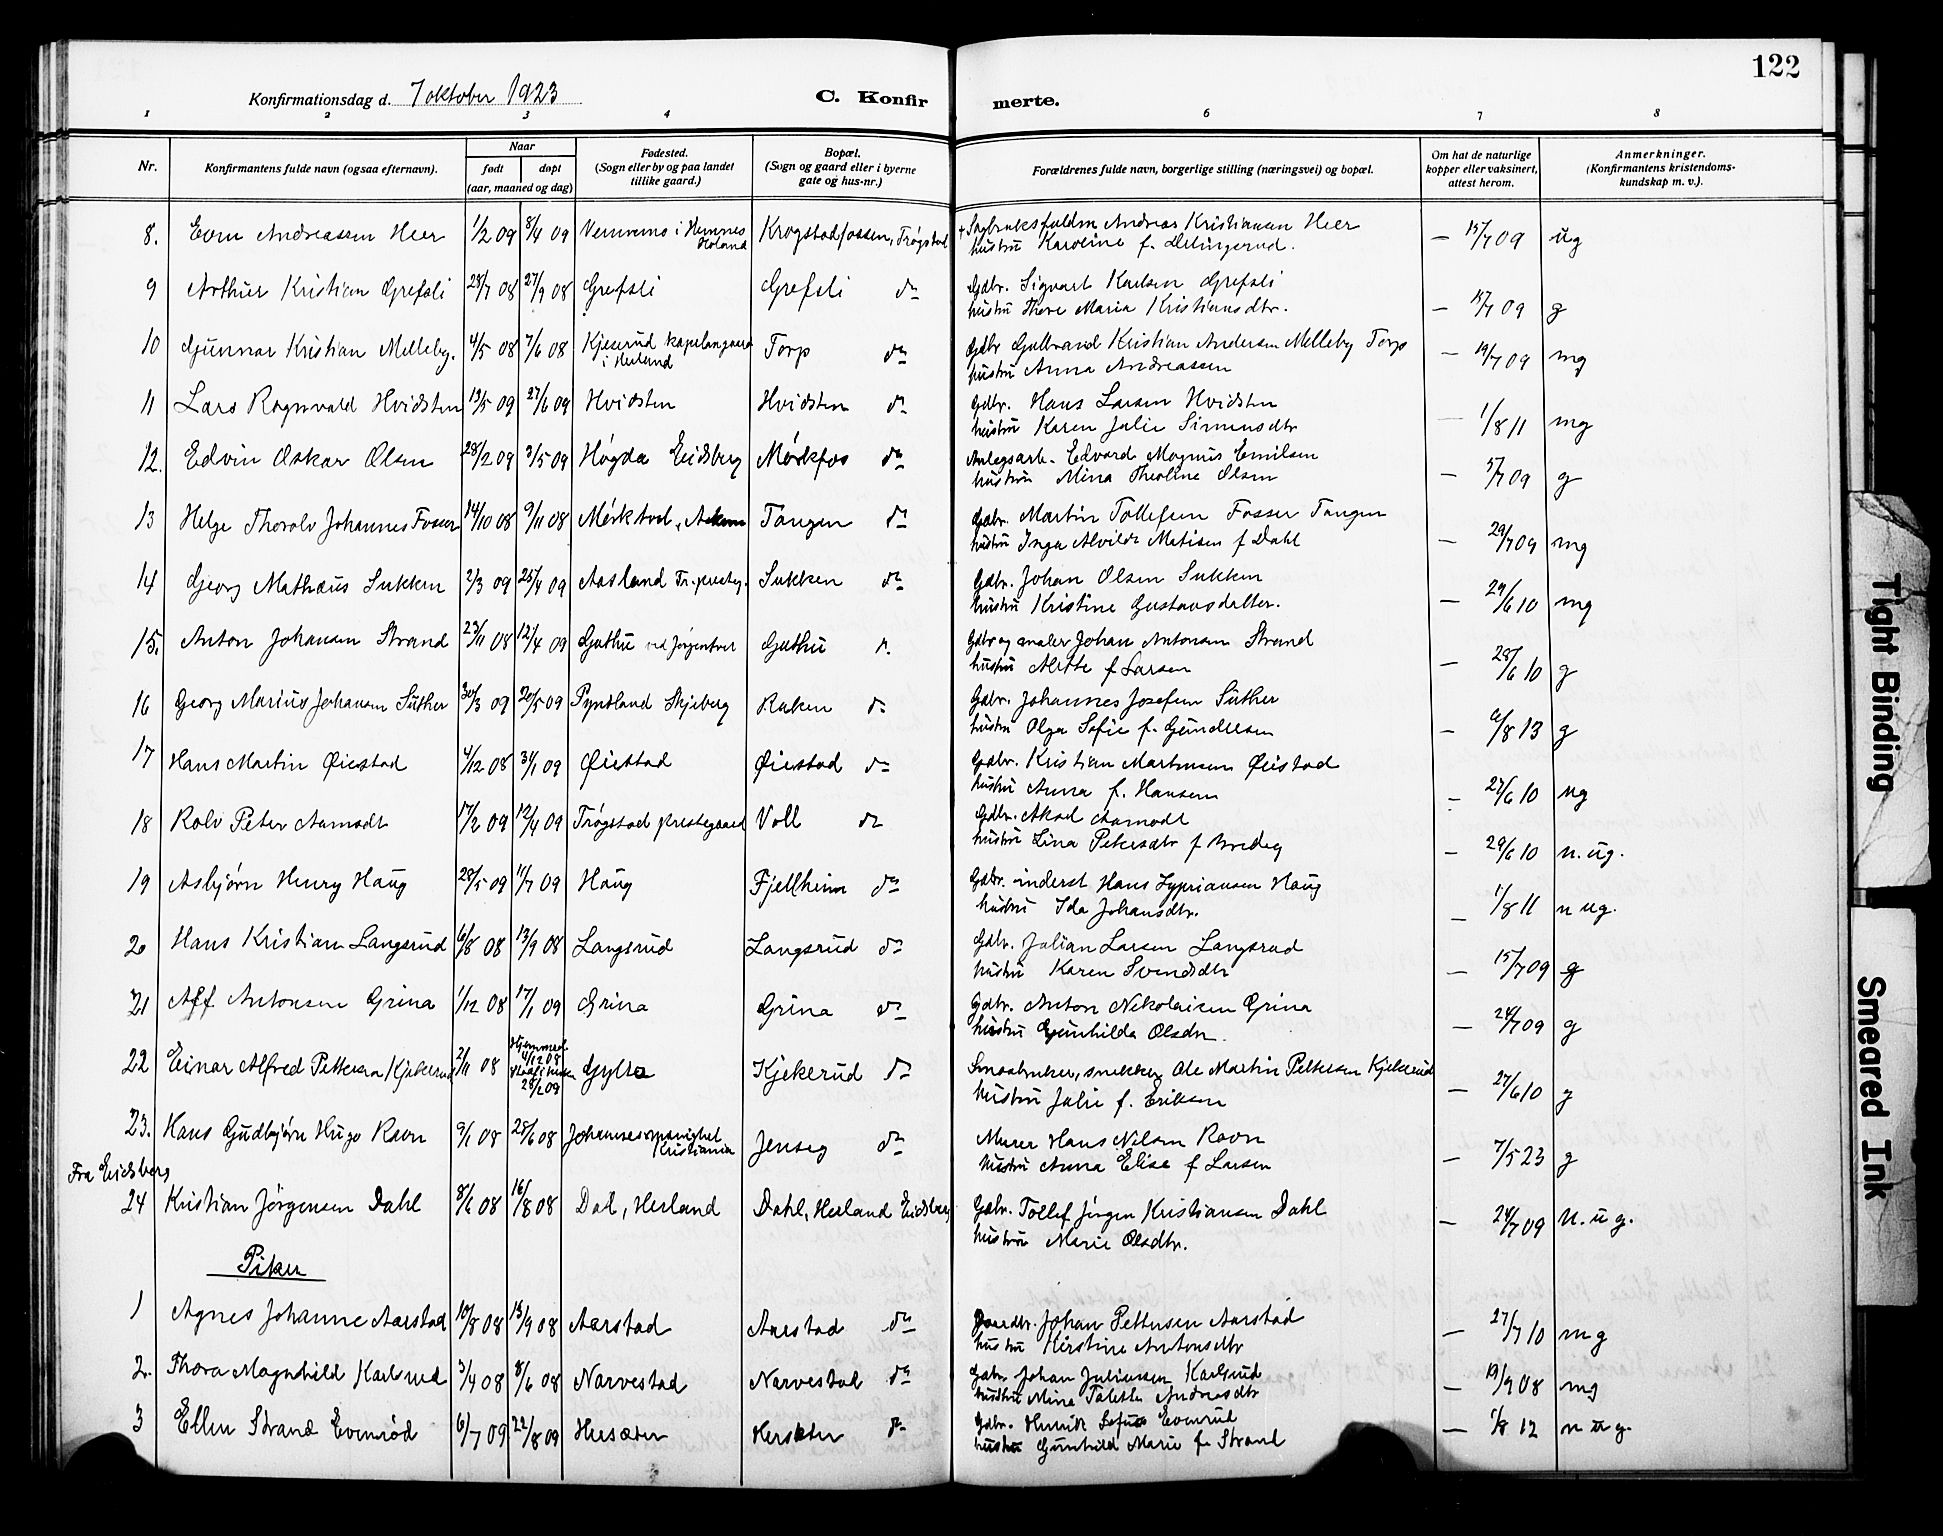 122
Konfirmationsdag d. 7 oktober 1923
C. Konfir merte.
1 2 3 4 6 7 8
Nr.
Konfirmantens fulde navn (ogsaa efternavn).
Naar
født døpt
(aar, maaned og dag)
Fødested.
(Sogn eller by og paa landet
tillike gaard.)
Bopæl.
(Sogn og gaard eller i byerne
gate og hus-nr.)
Forældrenes fulde navn, borgerlige stilling (næringsvei) og bopæl.
Om hat de naturlige
kopper eller vaksinert,
attest herom.
Anmerkninger.
(Konfirmantens kristendoms-
kundskap m. v.).
8. Andreassen Heer 1/2 09 8/4 09 i Hemnes Krogstadfossen, Trøgstad Andreas Kristiansen Heer — 15/7 09 ug
Høland hustru Karoline f.
9 Arthur Kristian Grefsli 28/7 08 27/9 08 Grefsli Grefsli do Gdbr. Sigvart Karlsen Grefsli
hustru Thore Maria Kristiansdtr. — 15/7 09 g
10 Gunnar Kristian Melleby. 4/5 08 7/6 08 Kjeserud kapelangaard Torp do Gdbr Gulbrand Kristian Andersen Melleby Torp — 19/7 09 mg
i Herland hustru Anna Andreassen
11 Lars Ragnvald Hvidsten 13/5 09 27/6 09 Hvidsten Hvidsten do Gdbr. Hans Larsen Hvidsten
hustru Karen Julie Simensdtr — 1/8 11 mg
12. Edvin Oskar Olsen 28/2 09 3/5 09 Høgda Eidsberg Mørkfos do Anlegsarb. Edvard Magnus Emilsen
hustru Mina Theoline Olsen — 5/7 09 g
13 Helge Thorolv Johannes Fosser 14/10 08 9/11 08 Mørkstad, Tangen do Gdbr. Martin Tollefsen Fosser Tangen
hustru Inga Alvilde Matisen f Dahl — 29/7 09 mg
14 Georg Mathæus Sukken 2/3 09 25/4 09 Aasland Tr. presteg. Sukken do Gdbr. Johan Olsen Sukken
hustru Kristine Gustavsdatter. — 29/6 10 mg
15. Anton Johansen Strand 23/11 08 12/4 09 Guthu ved Guthu d. Gdbr og maler Johan Antonsen Strand
hustru Alette f Larsen — 28/6 10 g
16 Georg Marius Johansen Suther 30/3 09 20/5 09 Skjeberg Raken do Gdbr. Johannes Josefsen Suther
hustru Olga Sofie f. Gundersen — /8 13 g
17 Hans Martin Øiestad 4/12 08 31/1 09 Øiestad Øiestad do Gdbr. Kristian Martinsen Øiestad
hustru Anna f. Hansen — 27/6 10 ug
18 Rolv Peter Aamodt 17/2 09 12/4 09 Trøgstad prestegaard Voll do Gdbr. Aksel Aamodt
hustru Lina Petersdtr f — 29/6 10 n.ug.
19 Asbjørn Henry Haug 28/5 09 11/7 09 Haug Fjellheim do Gdbr. inderst Hans Sypriansen Haug
hustru Ida Johansdtr. — 1/8 11 n ug.
20 Hans Kristian Langsrud 6/8 08 13/9 08 Langsrud Langsrud do Gdbr. Julian Larsen Langsrud
hustru Karen Svendsdtr — 15/7 09 g
21 Alf Antonsen Grina 1/12 08 17/1 09 Grina Grina do Gdbr. Anton Nikolaisen Grina
hustru Gunhilda Olsdtr. — 24/7 09 g
22 Einar Alfred Pettersen Kjekerud 2/11 08 Hjemmed. 4/12 08 28/2 09 Gylta Kjekerud do Smaabruker, snekker Ole Martin Pettersen Kjekerud
hustru Julie f. Eriksen — 27/6 10 g
23. Hans Gudbjørn Hugo Ravn 9/1 08 28/6 08 Johannesmenighet Kristiania Jenseg do Murer Hans Nilsen Ravn
hustru Anna Elise f Larsen — 7/5 23 g
Fra Eidsberg
24 Kristian Jørgensen Dahl 8/6 08 16/8 08 Dal, Herland Dahl, Herland Eidsberg Gdbr. Tollef Jørgen Kristiansen Dahl
hustru Marie Olsdtr. — 24/7 09 n.ug.
Piker
1 Agnes Johanne Aarstad 10/8 08 13/9 08 Aarstad Aarstad do Gaardbr. Johan Pettersen Aarstad
hustru Kirstine Antonsdtr — 27/7 10 mg
2. Thora Magnhild Karlsrud 3/4 08 8/6 08 Narvestad Narvestad do Gdbr. Johan Juliussen Karlsrud
hustru Mina Talette Andreasdtr — 19/9 08 mg
3 Ellen Strand Evenrød 6/7 09 22/8 09 Hersæter Hersæter do Gdbr. Henrik Evenrud
hustru Gunhild Marie f. Strand — 1/8 12 n ug.
Tight Binding
Smeared Ink